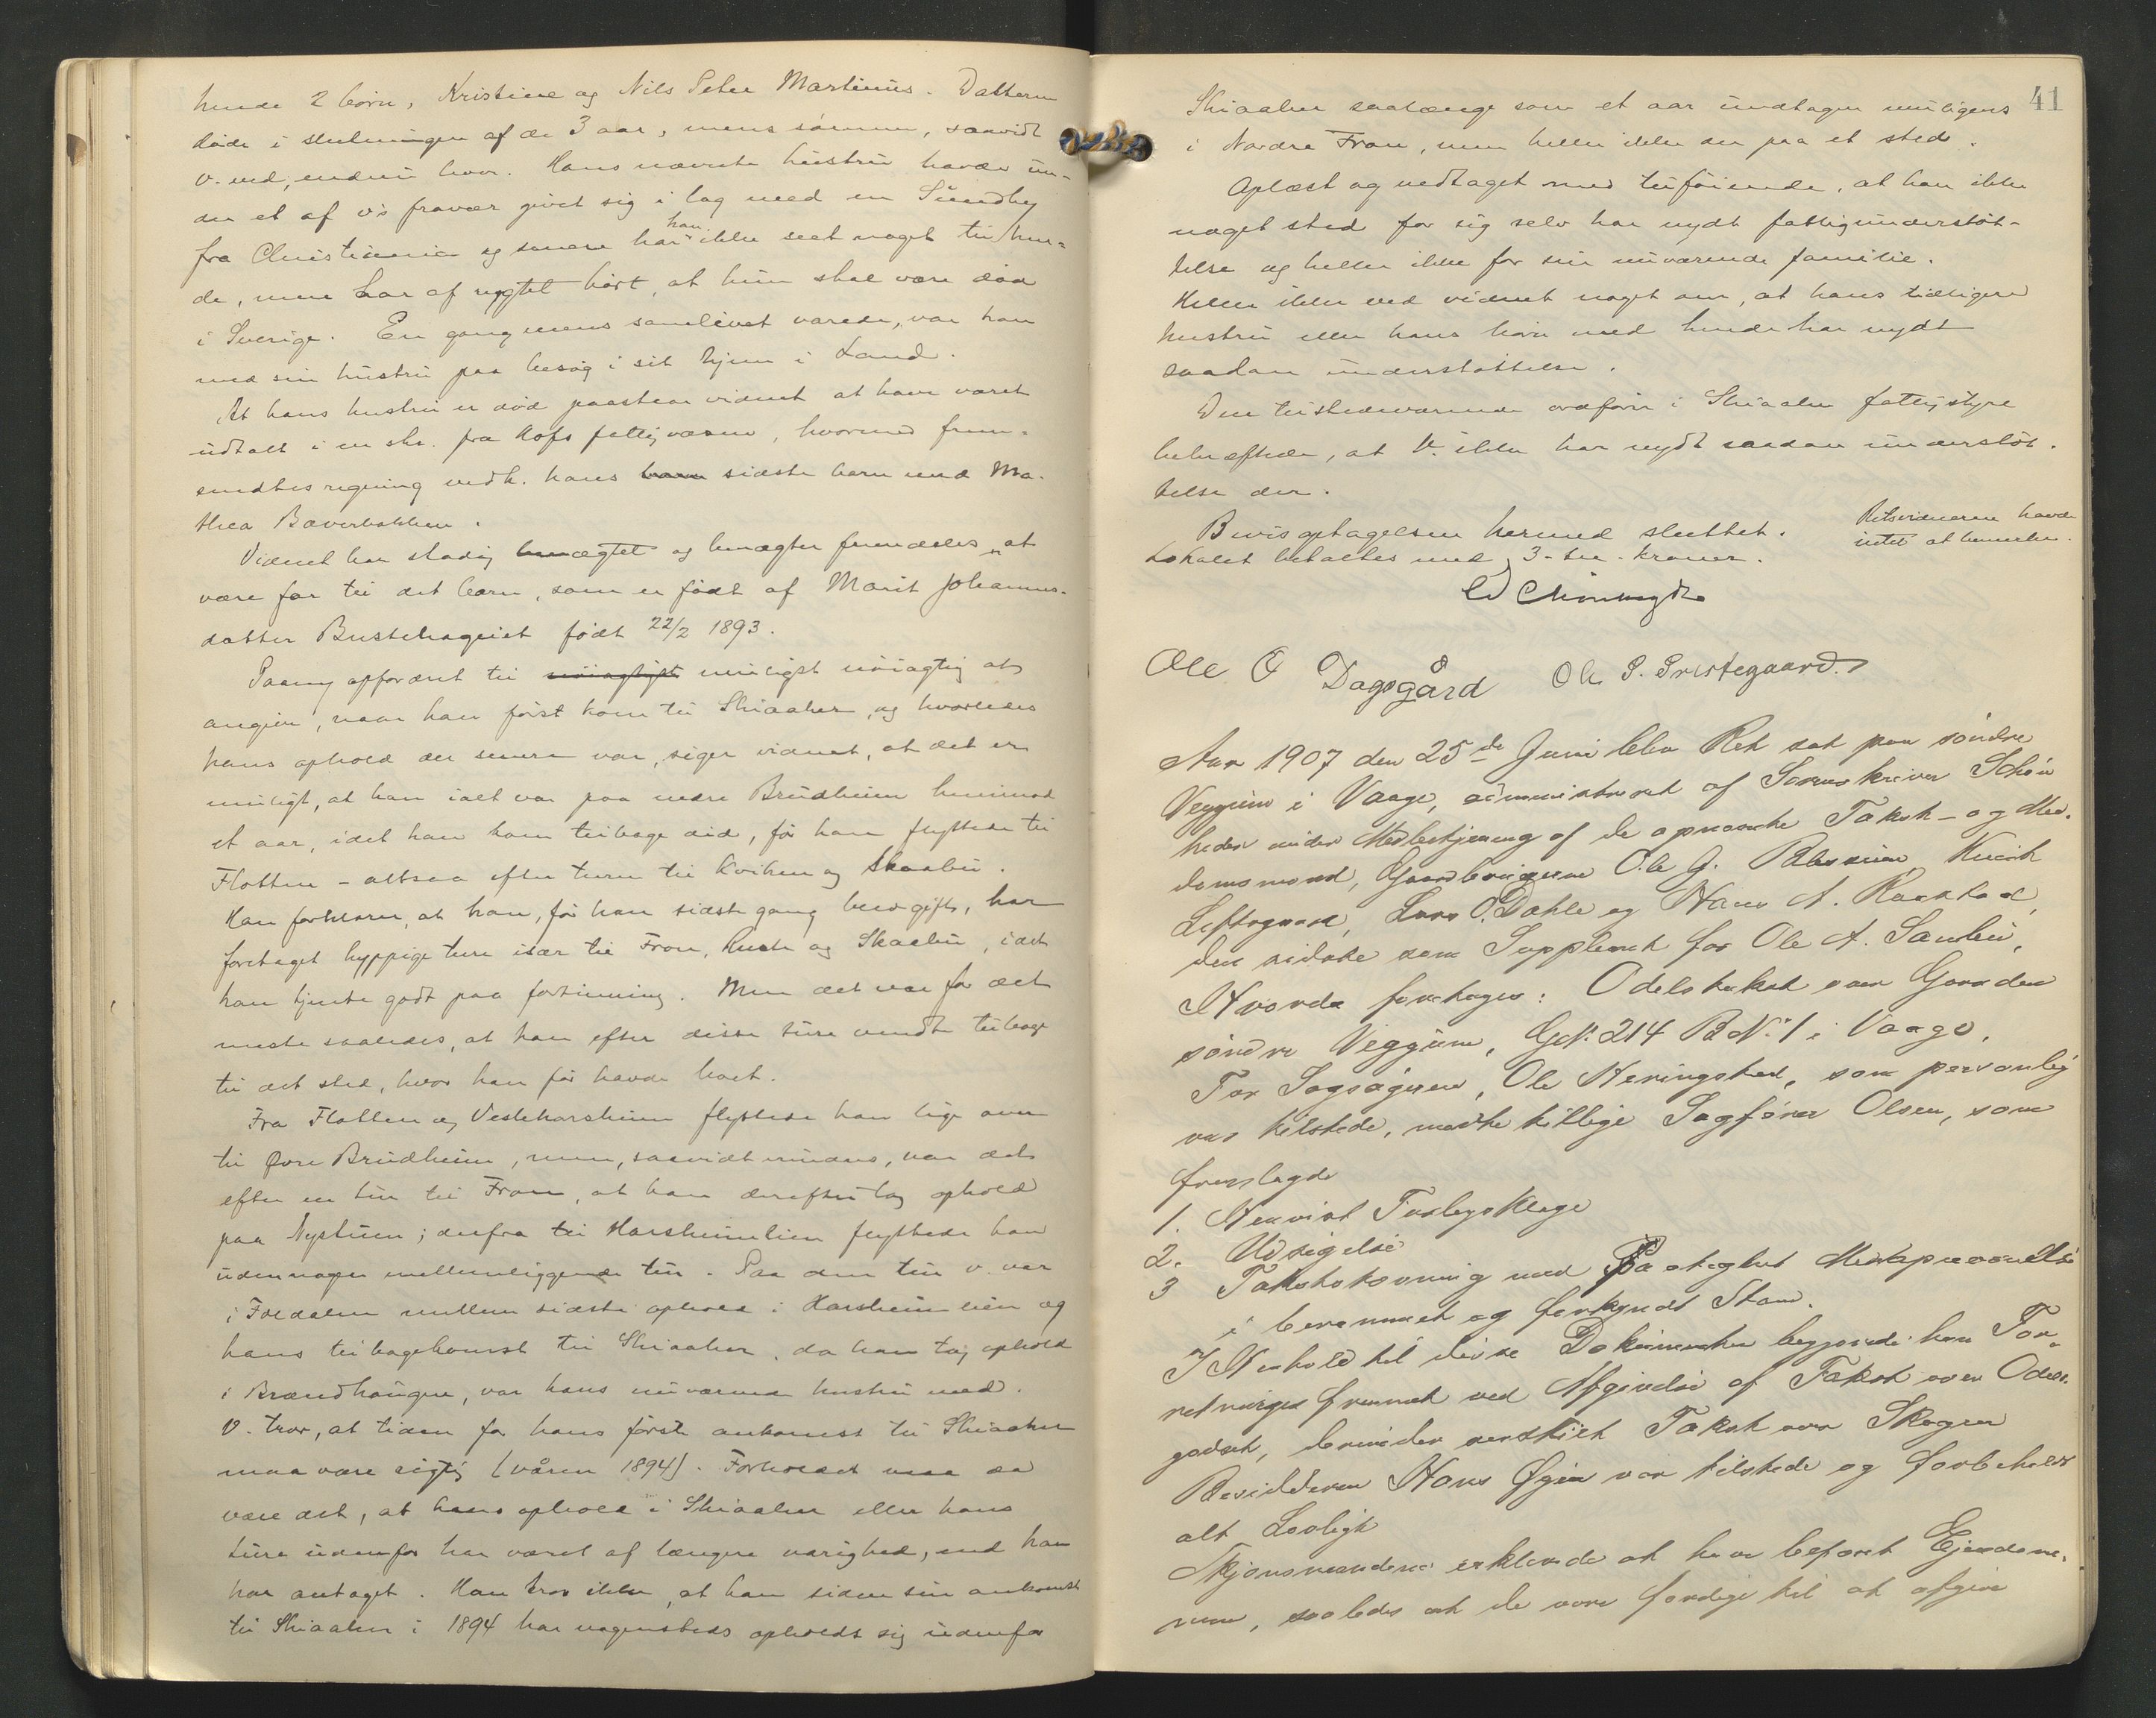 hende 2 børn, Kristine og Nils Peter Martinius. Datteren
døde i slutningen af de 3 aar, mens sønnen, saavidt
v. ved, endnu lever. Hans nævnte hustru havde un-
der et af v's fravær givet sig i lag med en Sundby
fra Christiania og senere har han ikke seet noget til hen-
de, men har af rygtet hørt, at hun skal være død
i Sverige. En gang mens samlivet varede, var han
med sin hustru paa besøg i sit hjem i Land.
At hans hustru er død paastaar vidnet at have været
udtalt i en skr. fra Hofs fattigvæsen, hvormed frem-
sendtes regning vedk. hans barn sidste barn med Ma-
thea Bæverbakken.
Vidnet har stadig benægtet og benægter fremdeles at
være far til det barn, som er født af Marit Johannes-
datter Bustehageiet født 22/2 1893.
Paany opfordret til nøiagtigst muligst nøiagtig at
angive, naar han først kom til Skiaaker, og hvorledes
hans ophold der senere var, siger vidnet, at det er
muligt, at han ialt var paa nedre Brudheim henimod
et aar, idet han kom tilbage did, før han flyttede til
Flotten - altsaa efter turen til Kvikne og Skaabu.
Han forklarer, at han, før han sidste gang blev gift, har
foretaget hyppige ture især til Fron, Kvikne og Skaabu, idet
han tjente godt paa fortinning. Men det var for det
meste saaledes, at han efter disse ture vendte tilbage
til det sted, hvor han før havde boet.
Fra Flotten og Vesleharsheim flyttede han lige over
til Øvre Brudheim, men, saavidt mindes, var det
efter en tur til Fron, at han derefter tog ophold
paa Nystuen; derfra til Harsheimlien flyttede han
uden nogen mellemliggende tur. Paa den tur v. var
i Foldalen mellem sidste ophold i Harsheimlien og
hans tilbagekomst til Skiaaker, da han tog ophold
i Brændhaugen, var hans nuværende hustru med.
V. tror, at tiden for hans første ankomst til Skiaaker
maa være rigtig (våren 1894). Forholdet maa da
være det, at hans ophold i Skiaaker eller hans
ture udenfor har været af længere varighed, end han
har antaget. Han tror ikke, at han siden sin ankomst
til Skiaaker i 1894 har nogensteds opholdt sig udenfor
41
Skiaaker saalænge som et aar undtagen muligens
i Nordre Fron, men heller ikke der paa et sted.
Oplæst og vedtaget med tilføiende, at han ikke
noget sted for sig selv har nydt fattigunderstøt-
telse og heller ikke for sin nuværende familie.
Heller ikke ved vidnet noget om, at hans tidligere
hustru eller hans børn med hende har nydt
saadan understøttelse.
Den tilstedeværende ordfører i Skiaaker fattigstyre
bekræftede, at V. ikke har nydt saadan understøt-
telse der.
Bevisoptagelsen hermed sluttet.
Retsvidnerne havde
intet at bemerke.
Lokalet betaltes med 3 - tre - kroner.
Ole O Dagsgård Ole P. Prestegaard.
Aar 1907 den 25de Juni blev Ret sat paa søndre
Veggum i Vaage, administreret af Sorenskriver Schøn
heder under Medbetjening af de opnævnte Takst- og Med-
domsmænd, Gaardbrugerne Ole G. Blessum, Knut
Loftsgaard, Lars O. Dahle og Hans A. Raastad,
den sidste som Suppleant for Ole A. Sandbu,
Hvorda foretages: Odelstakst over Gaarden
søndre Veggum, GN. 214 BN. 1 i Vaage.
For Sagsøgeren, Ole Heringstad, som personlig
var tilstede, mødte tillige Sagfører Olsen, som
fremlagde
1. Henvist Forligsklage
2. Udsigelse
3 Takststevning med Paategnet Medopnævnelse
i berammet og forkyndt Stand.
I Henhold til disse Dokumenter begjærede han For-
retningen fremmet ved Afgivelse af Takst over Odels-
godset, derunder særskilt Takst over Skogen
Besidderen Hans Øyen var tilstede og forbeholdt
alt Lovligt
Skjønsmændene erklærede at have befaret Ejendom-
men, saaledes at de vare færdige til at afgive